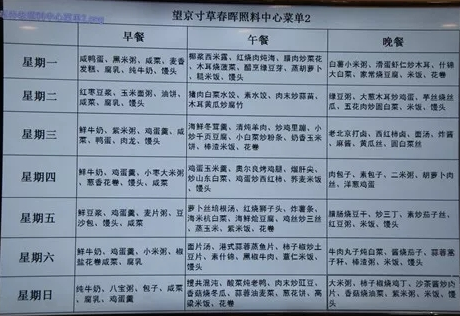 望京寸草春晖照料中心菜单2
早餐
午餐
晚餐
星期一
咸鸭蛋、黑米粥、咸菜、麦香
发糕、腐乳、纯牛奶、馒头
椰浆西米露、红烧肉炖海、腊肉炒菜花
、木耳烧菠菜、醋烹绿豆芽、蒸胡萝卜
、糙米饭、馒头
白薯小米粥、滑蛋虾仁炒木耳、什锦
大白菜、家常烧豆腐、米饭、花卷
星期二
红枣豆浆、玉米面粥、油饼、
咸菜、馒头
猪肉白菜水饺、素水饺、肉末炒蒜苗、
木耳黄瓜炒腐竹
绿豆粥、大葱木耳炒鸡蛋、芋丝烧丝
瓜、五花肉炒圆白菜、米饭、馒头
星期三
鲜牛奶、紫米粥、鸡蛋羹、咸
菜、鸭蛋、肉龙、馒头
海鲜冬茸羹、清炖羊肉、炒鸡里蹦、小
炒千页豆腐、小白菜炒粉条、奶香玉米
饼、棒渣米饭、花卷
老北京打卤、西红柿卤、面汤、炸酱
、麻酱、黄瓜丝、圆白菜丝
星期四
鲜牛奶、鸡蛋羹、小枣大米粥
、葱香花卷、馒头、咸菜
鸡蛋玉米羹、奥尔良烤鸡腿、熘肝尖、
炒山东白菜、鸡蛋炒西红柿、荞麦米饭
、馒头
肉包子、素包子、二米粥、胡萝卜肉
丝、洋葱鸡蛋
星期五
鲜豆浆、鸡蛋羹、麦片粥、豆
沙包、馒头、咸菜
萝卜丝培根汤、红烧狮子头、炸薯条、
海米杭白菜、海鲜烩豆腐、鸡丝炒三丝
、蒸玉米、紫米饭、花卷
腊肠烧豆干、炒三丁、素炒茄子丝、
红豆粥、米饭、馒头
星期六
鲜牛奶、鸡蛋羹、小米粥、椒
盐花卷咸菜、腐乳
面片汤、港式蒜蓉蒸鱼片、柿子椒炒土
豆片、素什锦、黑椒牛肉、薏仁米饭、
馒头
牛肉丸子炖白菜、酱烧茄子、蒜蓉茼
子秆、棒渣粥、米饭、馒头
星期日
纯牛奶、八宝粥、包子、咸菜
、腐乳、鸡蛋羹
酸菜炖老鸭、肉末炒豇豆、
香菇烧冬瓜、蒜蓉油麦菜、葱花饼、高
粱米饭、花卷
大米粥、柿子椒烧鸡丁、沙茶酱炒肉
片、香菇烧油菜、紫米粥、米饭、馒
头